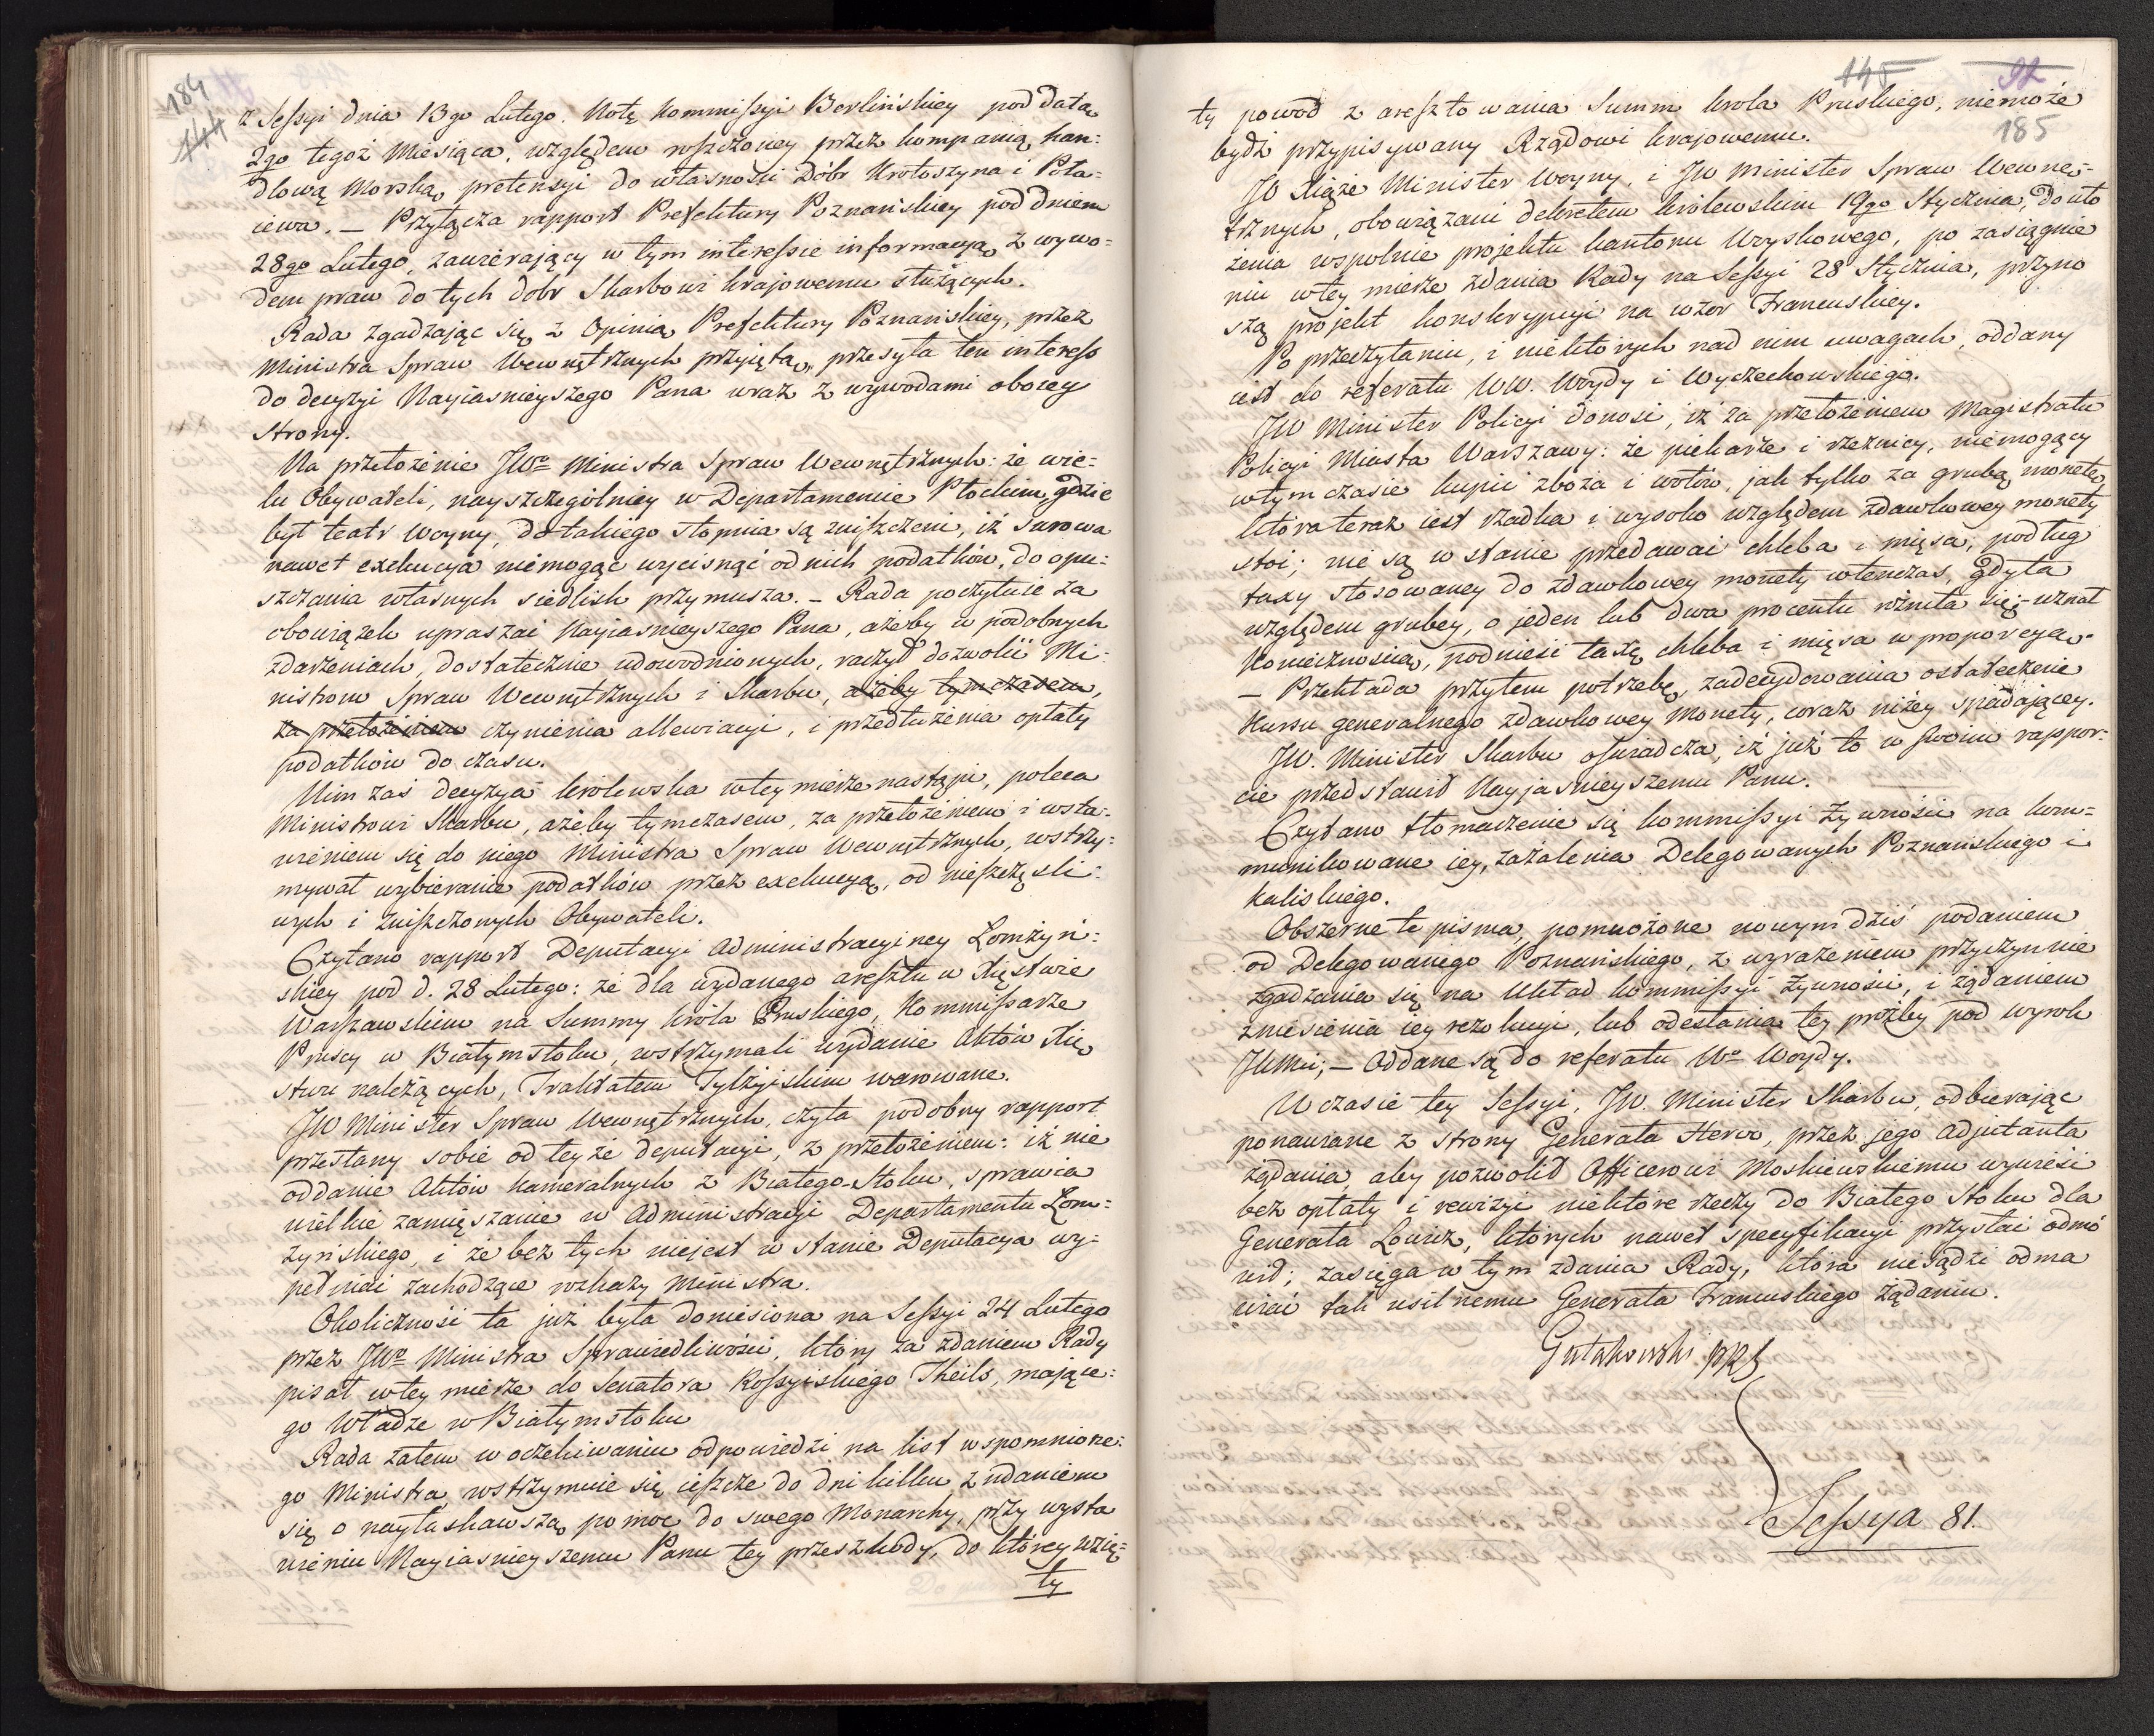 184
144
z Sessyi dnia 13go Lutego. Notę Kommissyi Berlińskiey pod datą
2go tegoż Miesiąca, względem roszczoney przez kompanią han-
dlową Morską, pretensyi do własności Dóbr Krotoszyna i Pota-
iewa. — Przyłącza rapport Prefektury Poznańskiey pod dniem
28go Lutego, zawierający w tym interessie informacyą z wywo-
dem praw do tych dobr Skarbowi krajowemu służących.
Rada zgadzając się z Opinią Prefektury Poznańskiey, przez
Ministra Spraw Wewnętrznych przyiętą, przesyła ten interess
do decyzyi Nayiasnieyszego Pana wraz z wywodami oboiey
Strony.
Na przełożenie JWo Ministra Spraw Wewnętrznych: że wie-
lu Obywateli, nayszczególniey w Departamencie Płockim, gdzie
był teatr Woyny, do takiego stopnia są zniszczeni, iż surowa
nawet exekucya niemogąc wycisnąć od nich podatków, do opu-
szczania własnych siedlisk przymusza. — Rada poczytuie za
obowiązek upraszać Nayiasnieyszego Pana, ażeby w podobnych
zdarzeniach, dostatecznie udowodnionych, raczył dozwolić Mi-
nistrom Spraw Wewnętrznych i Skarbu, ażeby tymczasem,
za przełożeniem czynienia allewiacyi, i przedłużenia opłaty
podatków do czasu.
Nim zaś decyzya królewska wtey mierze nastąpi, poleca
Ministrowi Skarbu, ażeby tymczasem, za przełożeniem i wsta-
wieniem się do niego Ministra Spraw Wewnętrznych, wstrzy-
mywał wybieranie podatków przez exekucyą, od nieszczęśli-
wych i zniszczonych Obywateli.
Czytano rapport Deputacyi Administracyiney Łomżyń-
skiey pod d. 28 Lutego: że dla wydanego aresztu w Xięstwie
Warszawskim na Summy króla Pruskiego, Kommissarze
Pruscy w Białymstoku, wstrzymali wydanie Aktów Xię
stwu należących, Traktatem Tylżyiskim warowane.
JW Minister Spraw Wewnętrznych, czyta podobny rapport
przesłany sobie od teyże deputacyi, z przełożeniem: iż nie
oddanie Aktów kameralnych z Białego-Stoku, sprawia
wielkie zamięszanie w Administracyi Departamentu Łom-
żyńskiego, i że bez tych niejest w stanie Deputacya wy-
pełniać zachodzące rozkazy Ministra.
Okoliczność ta już była doniesiona na Sessyi 24 Lutego
przez JWo Ministra Sprawiedliwości, który za zdaniem Rady
pisał wtey mierze do Senatora Rossyiskiego Theils, mające-
go Władze w Białymstoku
Rada zatem w oczekiwaniu odpowiedzi na list wspomnione-
go Ministra, wstrzymuie się ieszcze do dni killku z udaniem
się o nayłaskawszą pomoc do swego Monarchy, przy wysta
wieniu Nayiasnieyszemu Panu tey przeszkody, do którey wzię-
ty
145
92
185
ty powód z aresztowania Summ krola Pruskiego, niemoże
bydź przypisywany Rządowi krajowemu.
JO Xiąże Minister Woyny, i JW Minister Spraw Wewnę-
trznych, obowiązani dekretem królewskim 19go Stycznia, do uło
żenia wspolnie projektu kantonu Woyskowego, po zasiągnie
niu wtey mierze zdania Rady na Sessyi 28 Stycznia, przyno
szą projekt konskrypcyi na wzor Francuskiey.
Po przeczytaniu, i niektórych nad nim uwagach, oddany
iest do referatu WW. Woydy i Wyczechowskiego.
JW Minister Policyi donosi, iż za przełożeniem Magistratu
Policyi Miasta Warszawy: że piekarze i rzeźnicy, niemogący
wtym czasie kupić zboża i wołów, jak tylko za grubą monetę,
która teraz iest rzadka i wysoko względem zdawkowey monety
stoi; nie są w stanie przedawać chleba i mięsa, podług
taxy stosowaney do zdawkowey monety wtenczas, gdy ta
względem grubey, o jeden lub dwa procentu różniła się; uznał
Koniecznością, podnieść taxę chleba i mięsa w proporcyą.
— Przekłada przytem potrzebę, zadecydowania ostatecznie
kursu generalnego zdawkowey Monety, coraz niżey spadającey.
JW. Minister Skarbu oświadcza, iż już to w swoim rappor-
cie przedstawił Nayjasnieyszemu Panu.
Czytano tłomaczenie się kommissyi Żywności na kom-
munikowane iey, zażalenia Delegowanych Poznańskiego i
Kaliskiego.
Obszerne te pisma, pomnożone nowym dziś podaniem
od Delegowanego Poznańskiego, z wyrażeniem przyczyn nie
zgadzania się na Układ kommissyi Żywności, i żądaniem
zniesienia iey rezolucyi, lub odesłania tey proźby pod wyrok
JKMci; — Oddane są do referatu Wo Woydy.
W czasie tey Sessyi, JW. Minister Skarbu, odbierając
ponawiane z strony Generała Hervo, przez jego Adjutanta
żądania, aby pozwolił Officerowi Moskiewskiemu wywieść
bez opłaty i rewizyi niektóre rzeczy do Białego Stoku dla
Generała Lowiz, których nawet specyfikacyi przysłać odmó
wił; zasięga w tym zdania Rady, która niesądzi odma
wiać tak usilnemu Generała Francuskiego żądaniu.
Gutakowski prz
Sessya 81.